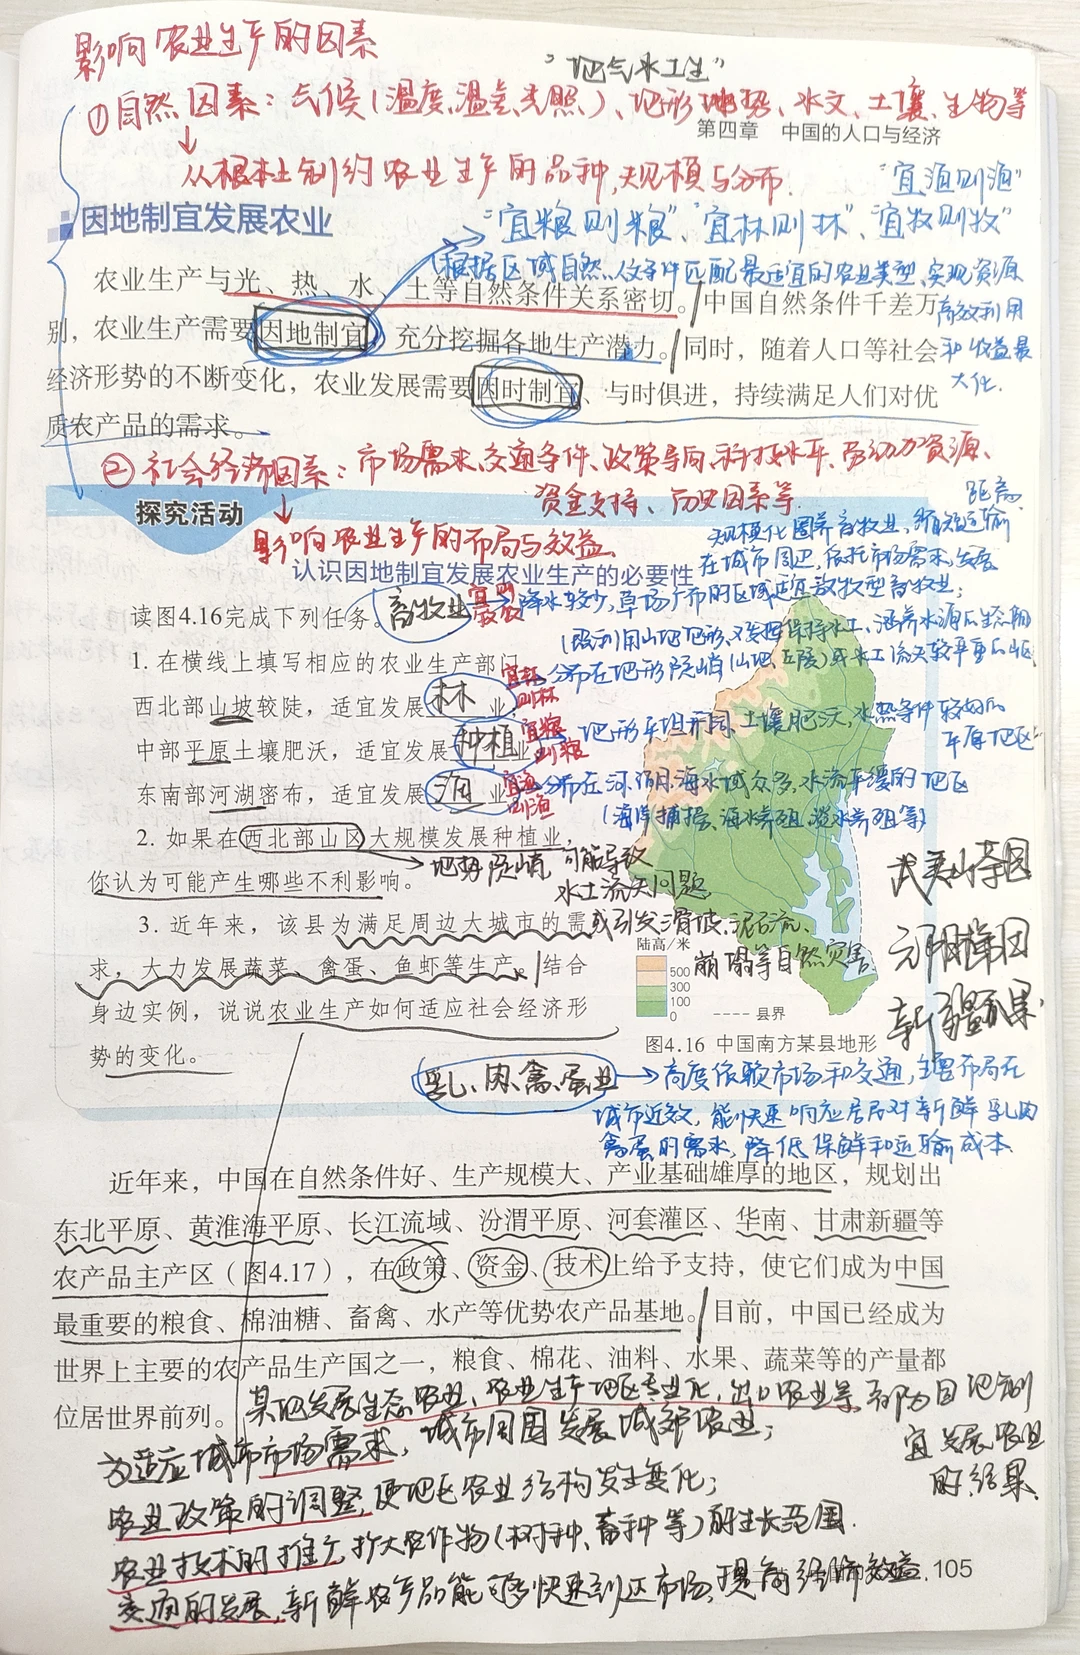 影响农业生产的因素
“地气水土生”
①自然因素：气候（温度、湿度、光照）、地形地势、水文、土壤、生物等
第四章 中国的人口与经济
从根本上制约农业生产的品种，规模与分布
“宜渔则渔”
因地制宜发展农业
“宜粮则粮”、“宜林则林”、“宜牧则牧”
（根据区域自然、人文条件匹配最适宜的农业类型，实现资源
高效利用
和收益最
大化.
农业生产与光、热、水、土等自然条件关系密切。中国自然条件千差万
别，农业生产需要因地制宜，充分挖掘各地生产潜力。同时，随着人口等社会
经济形势的不断变化，农业发展需要因时制宜、与时俱进，持续满足人们对优
质农产品的需求。
②社会经济因素：市场需求、交通条件、政策导向、科技水平、劳动力资源、
资金支持、历史因素等
探究活动
影响农业生产的布局与效益.
认识因地制宜发展农业生产的必要性
距离
规模化圈养畜牧业，缩短运输
在城市周边，依托市场需求发展
读图4.16完成下列任务。
畜牧业
宜牧
则牧
降水较少，草场广布的区域适宜放牧型畜牧业；
（既利用山地地形，又发挥保持水土、涵养水源的生态功
1. 在横线上填写相应的农业生产部门
分布在地形陡峭（山地、丘陵）或水土流失较严重的山区
西北部山坡较陡，适宜发展 林 业，
宜林
则林
中部平原土壤肥沃，适宜发展 种植 业，
宜粮
则粮
地形平坦开阔，土壤肥沃，水热条件较好的
平原地区
东南部河湖密布，适宜发展 渔 业。
宜渔
则渔
分布在河、湖、海水域众多，水流平缓的地区
（海洋捕捞、海水养殖、淡水养殖等）
2. 如果在西北部山区大规模发展种植业，
你认为可能产生哪些不利影响。
地势陡峭，可能导致
水土流失问题，
或引发滑坡、泥石流、
崩塌等自然灾害.
武夷山茶园
元阳梯田
新疆瓜果
3. 近年来，该县为满足周边大城市的需
求，大力发展蔬菜、禽蛋、鱼虾等生产。结合
身边实例，说说农业生产如何适应社会经济形
势的变化。
陆高/米
500
300
100
0
县界
图4.16 中国南方某县地形
乳、肉、禽、蛋业
高度依赖市场和交通，主要布局在
城市近郊，能快速响应居民对新鲜乳肉
禽蛋的需求，降低保鲜和运输成本.
近年来，中国在自然条件好、生产规模大、产业基础雄厚的地区，规划出
东北平原、黄淮海平原、长江流域、汾渭平原、河套灌区、华南、甘肃新疆等
农产品主产区（图4.17），在政策、资金、技术上给予支持，使它们成为中国
最重要的粮食、棉油糖、畜禽、水产等优势农产品基地。目前，中国已经成为
世界上主要的农产品生产国之一，粮食、棉花、油料、水果、蔬菜等的产量都
位居世界前列。
某地发展生态农业、农业生产地区专业化、出口农业等，都为因地制
宜发展农业
的结果.
为适应城市市场需求，城市周围发展城郊农业；
农业政策的调整，使地区农业结构发生变化；
农业技术的推广，扩大农作物（树种、畜种等）的生长范围.
交通的发展，新鲜农产品能够快速到达市场，提高经济效益.
105